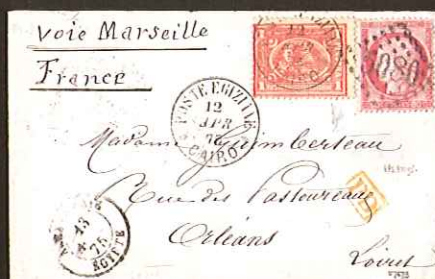 Voie Marseille
France
POSTE EGIZIANE
12
APR
75
CAIRO
5080
Madame
Rue des Pastoureaux
Orléans
Loiret
PD
13
75
EGYPTE